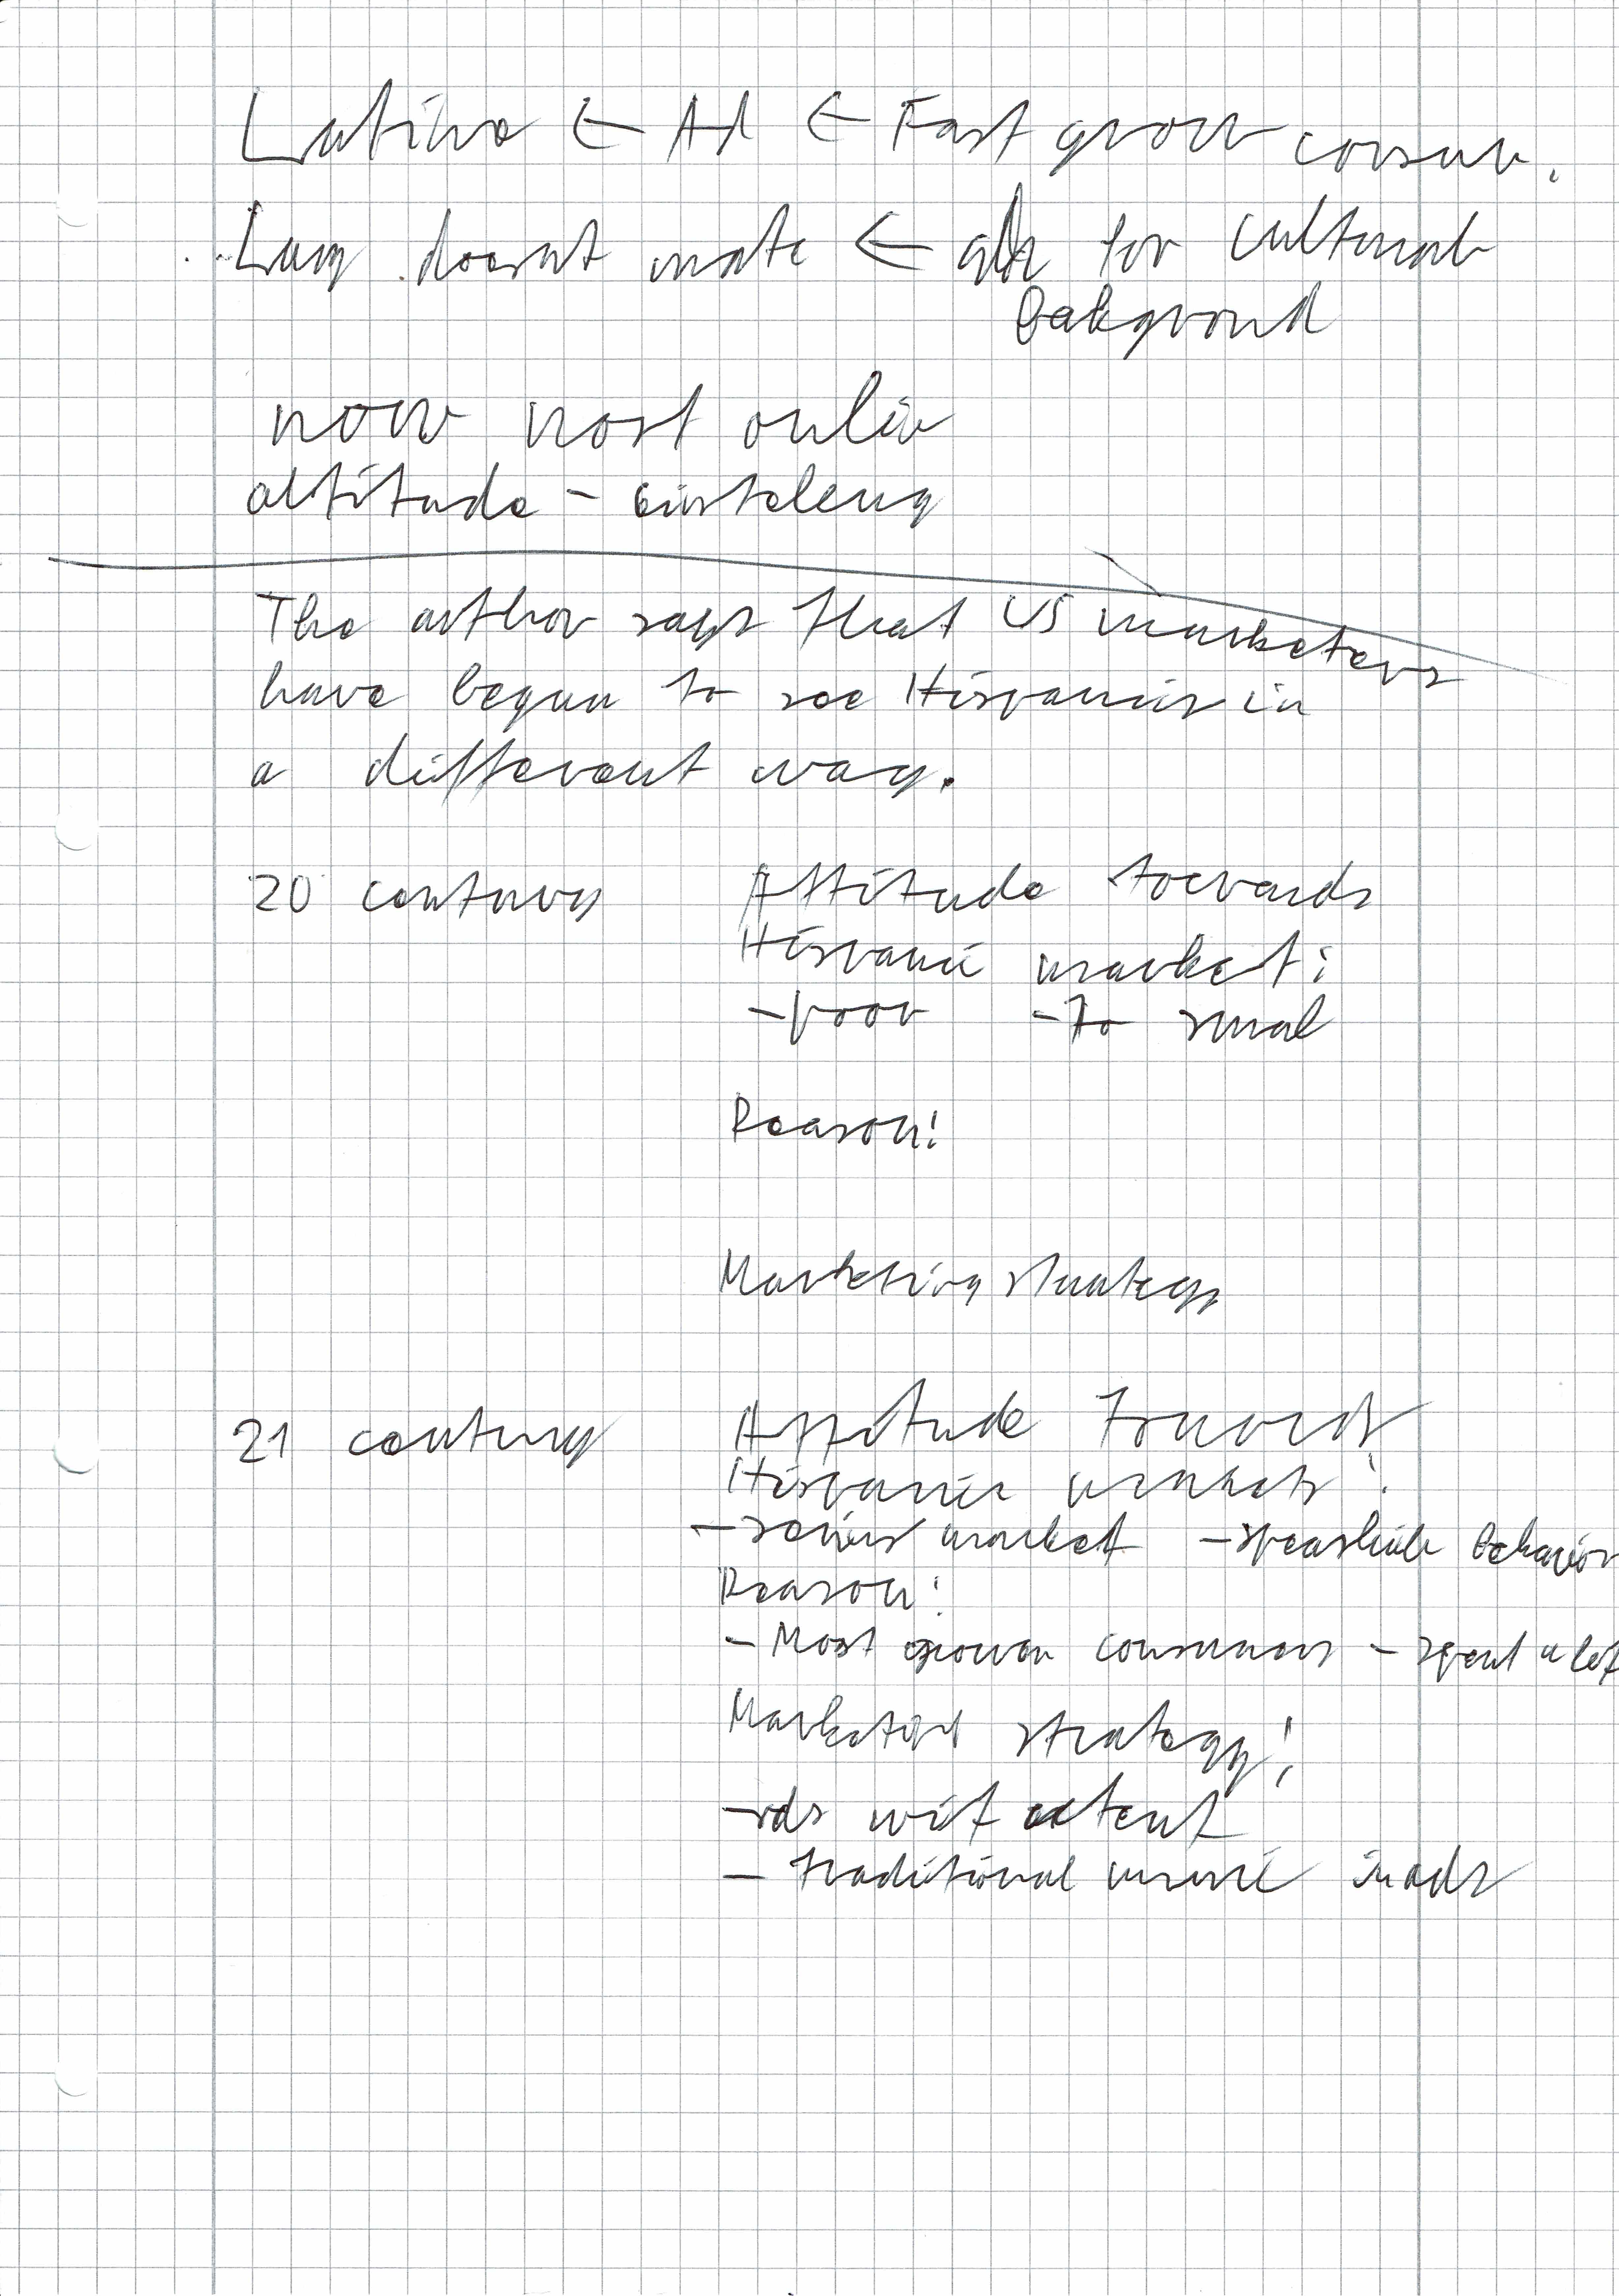 Latino ← Ad ← Fast grow consum.
Lang doesnt mate ← ads for cultural
bakground
now most onlin
attitude - einstelung
The author says that US marketers
have begun to see Hispanics in
a different way.
20 century Attitude towards
Hispanic market:
- poor - to smal
Reason:
Marketing strategy
21 century Attitude Towards
Hispanic markets:
- market behavior
Reason:
- Most grown consumers - spent a lot
Marketing strategy:
- ads wit
- traditional music in ads